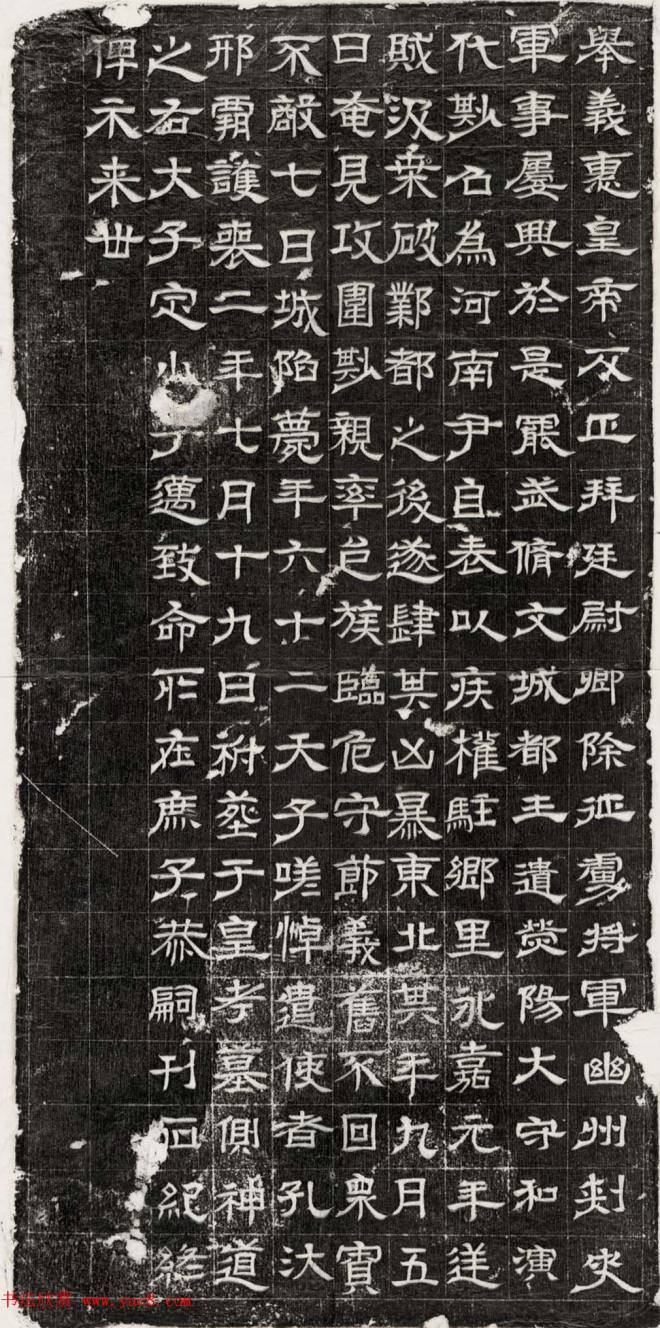 舉義惠皇帝反正拜廷尉卿除征虜將軍幽州刾史
軍事屢興於是罷武脩文城都王遣熒陽大守和演
代尠名為河南尹自表以疾權駐鄉里永嘉元年逆
賊汲桒破鄴都之後遂肆其凶暴東北其年九月五
日奄見攻圍尠親率邑族臨危守節義舊不回衆寡
不敵七日城陷薨年六十二天子嗟悼遣使者孔汏
邢霸護喪二年七月十九日祔葬于皇考墓側神道
之右大子定小子邁致命所在庶子恭嗣刊石紀終
俾示来世
书法欣赏 www.yac8.com